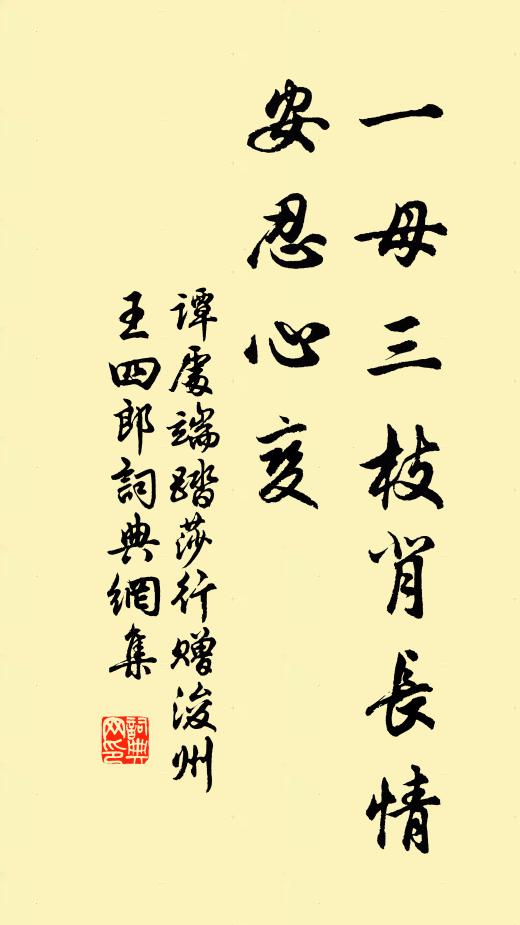 一毋三枝肯長情
安忍心变
譚處端踏莎行贈浚州
王四郎詞典網集
詞典网印